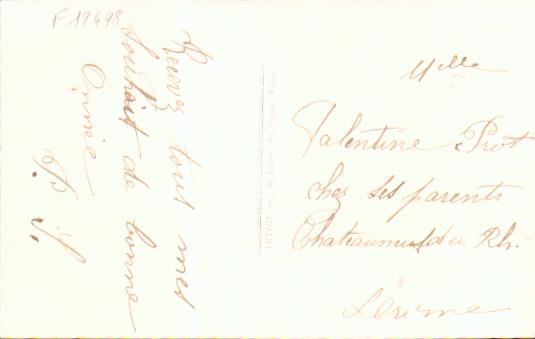 F 12498
Recevez tous mes
souhait de bonne
Année
P. S.
Melle
Valentine Prost
chez ses parents
Chateauneuf du Rh.